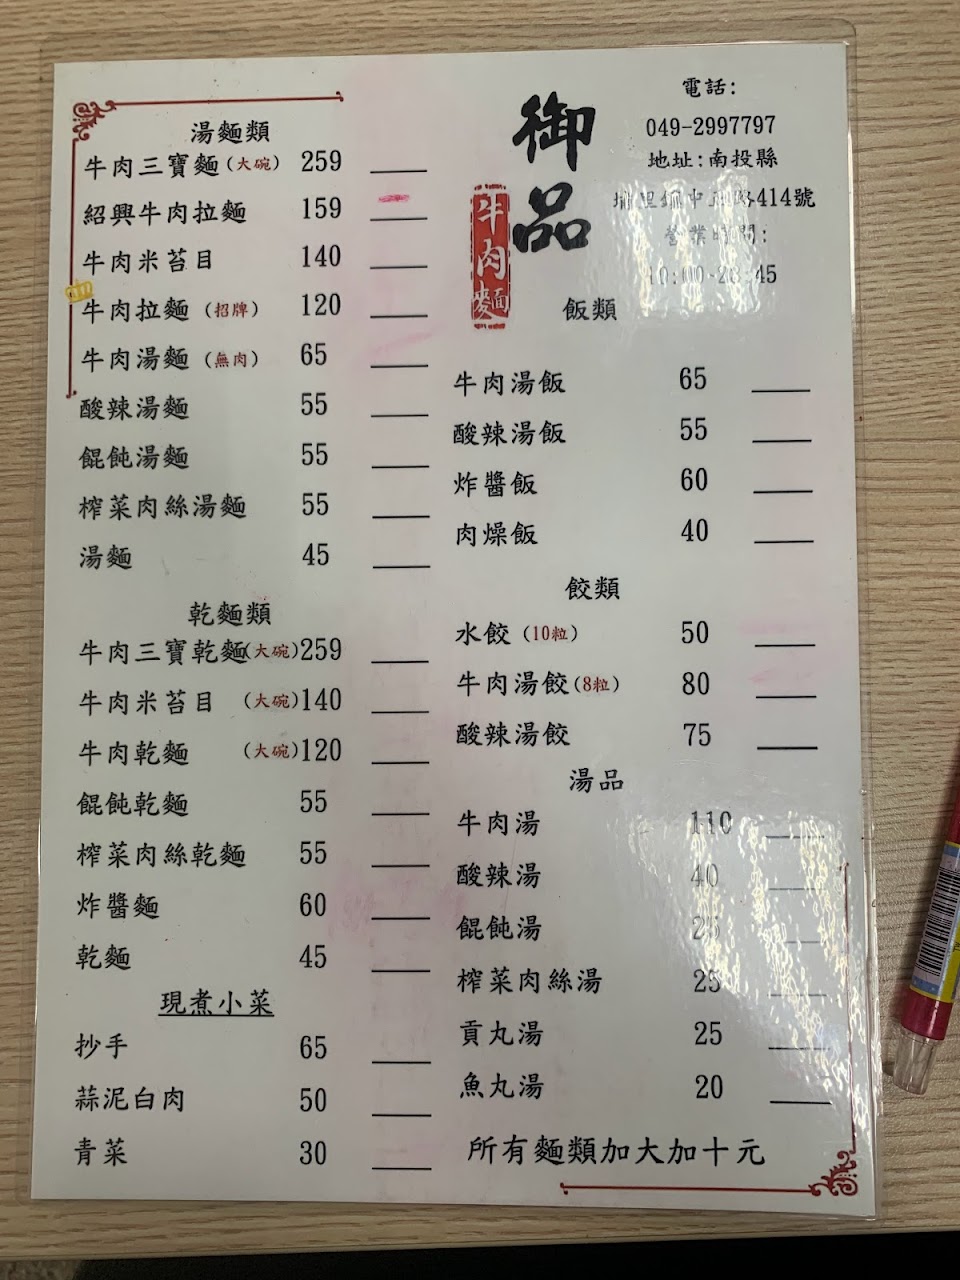 湯麵類
牛肉三寶麵(大碗) 259
紹興牛肉拉麵 159
牛肉米苔目 140
牛肉拉麵(招牌) 120
牛肉湯麵(無肉) 65
酸辣湯麵 55
餛飩湯麵 55
榨菜肉絲湯麵 55
湯麵 45
乾麵類
牛肉三寶乾麵(大碗) 259
牛肉米苔目 (大碗) 140
牛肉乾麵 (大碗) 120
餛飩乾麵 55
榨菜肉絲乾麵 55
炸醬麵 60
乾麵 45
現煮小菜
抄手 65
蒜泥白肉 50
青菜 30
御品
牛肉麵
電話:
049-2997797
地址:南投縣
埔里鎮中正路414號
營業時間:
飯類
牛肉湯飯 65
酸辣湯飯 55
炸醬飯 60
肉燥飯 40
餃類
水餃(10粒) 50
牛肉湯餃(8粒) 80
酸辣湯餃 75
湯品
牛肉湯 110
酸辣湯 40
餛飩湯 25
榨菜肉絲湯 25
貢丸湯 25
魚丸湯 20
所有麵類加大加十元